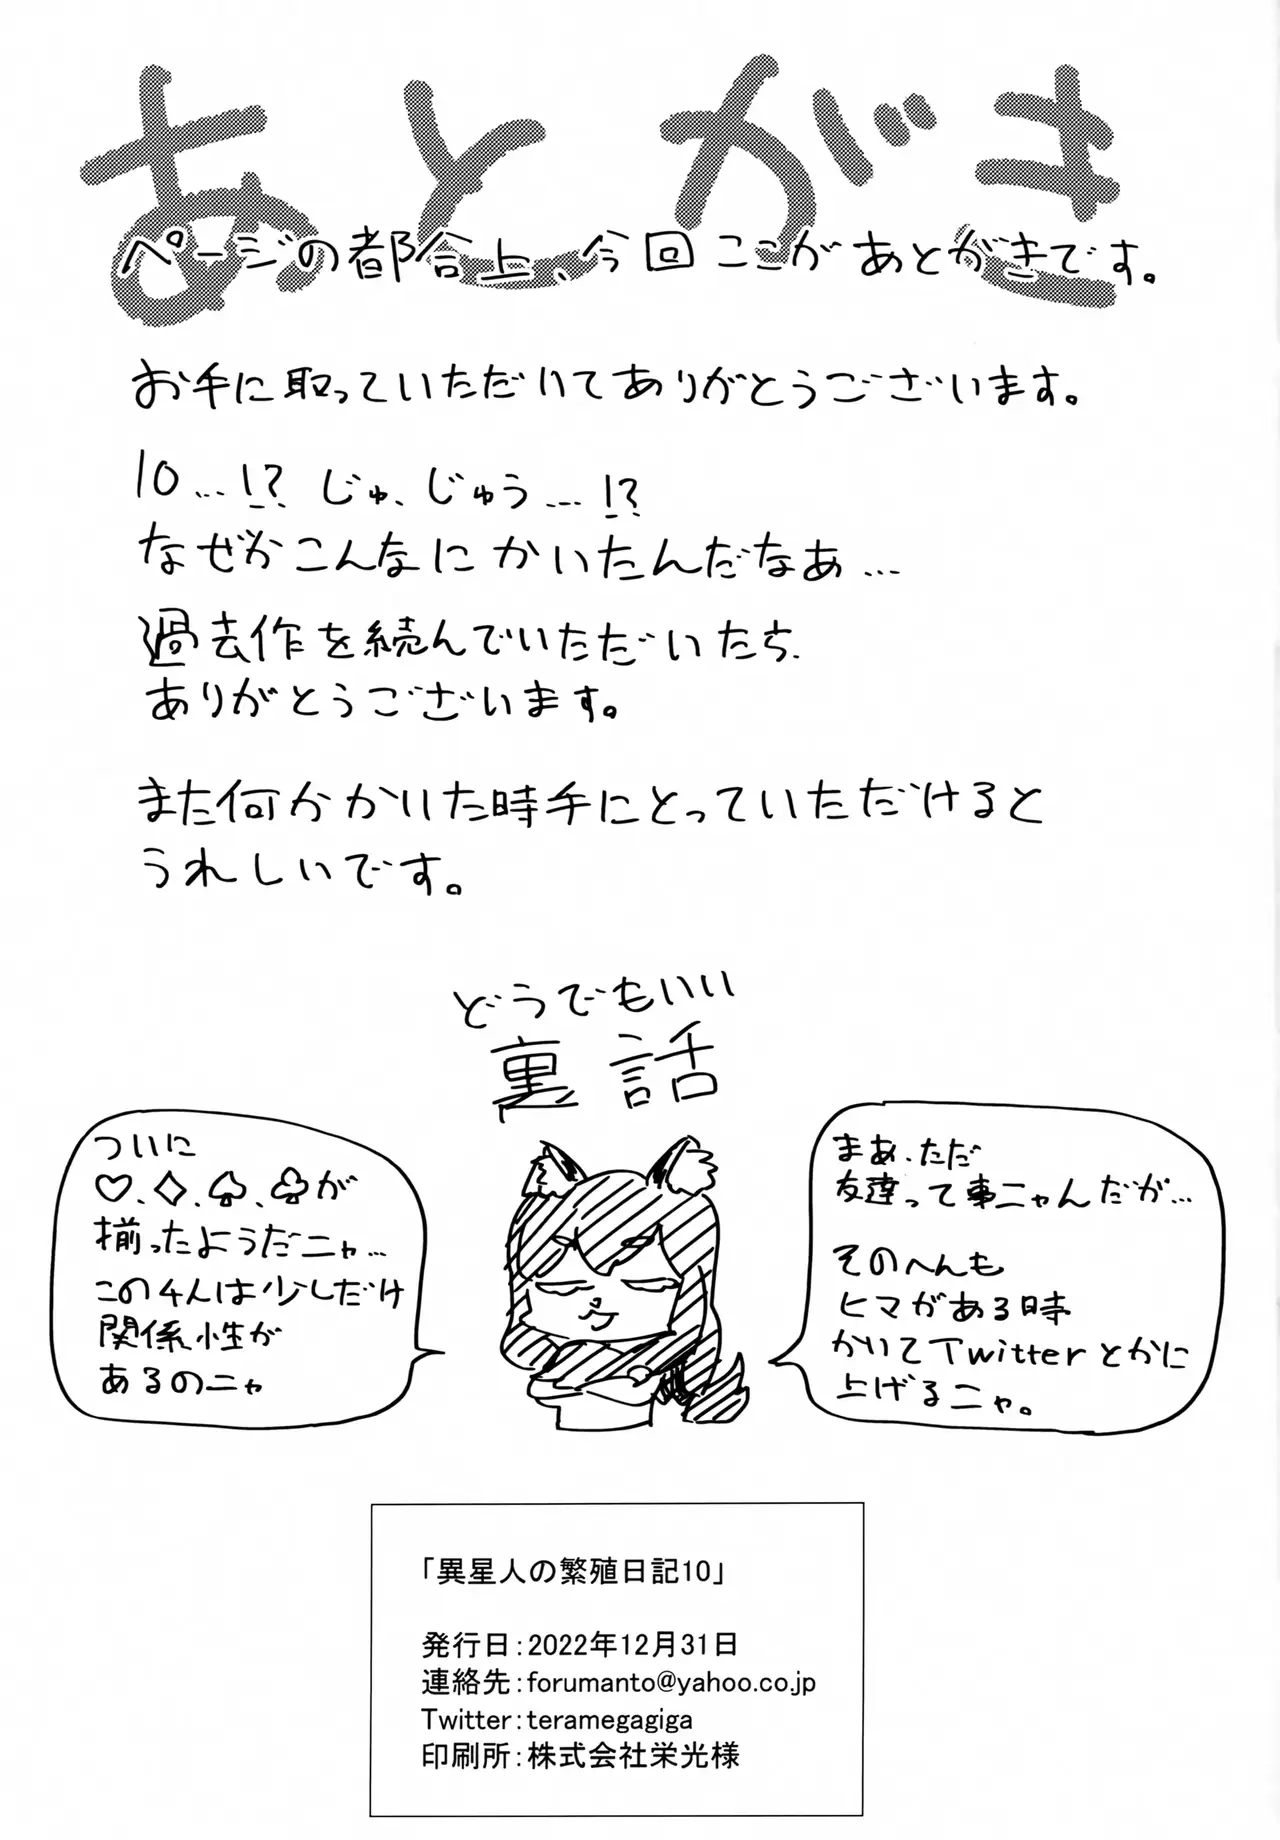 あとがき
ページの都合上、今回ここがあとがきです。
お手に取っていただいてありがとうございます。
10…!? じゅ、じゅう…!?
なぜかこんなにかいたんだなあ…
過去作を続んでいただいたち、
ありがとうございます。
また何かかいた時手にとっていただけると
うれしいです。
どうでもいい
裏話
ついに
♡、◇、♤、♧が
揃ったようだニャ…
この4人は少しだけ
関係性が
あるのニャ
まあ、ただ
友達って事ニャんだが…
そのへんも
ヒマがある時
かいてTwitterとかに
上げるニャ。
「異星人の繁殖日記10」
発行日：2022年12月31日
連絡先：forumanto@yahoo.co.jp
Twitter：teramegagiga
印刷所：株式会社栄光様